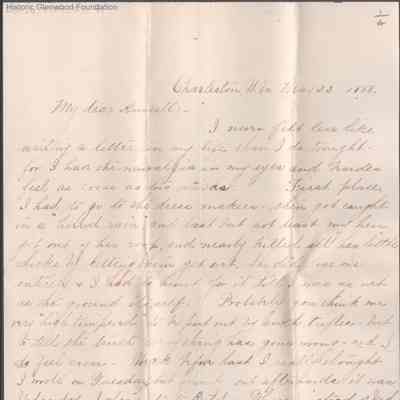 Historic Glenwood Foundation
1/4
Charleston W Va May 23 1888.
My dear Russell:-
I never felt less like
writing a letter in my life than I do tonight-
for I have the neuralgia in my eyes and
feel as cross as two as First place
I had to go to the dress makers- then got caught
in a "hard rain" and last but not least my hen
got out of her coop, and nearly killed all her little
chicks by letting them get wet. She
& I had to hunt for it till I was as wet
as the ground itself. Probably you think me
very high tempered to be put out by such trifles- but
to tell the truth everything has gone wrong- and I
do feel cross- Week before last I really thought
I wrote on Tuesday, but found out afterwards it was